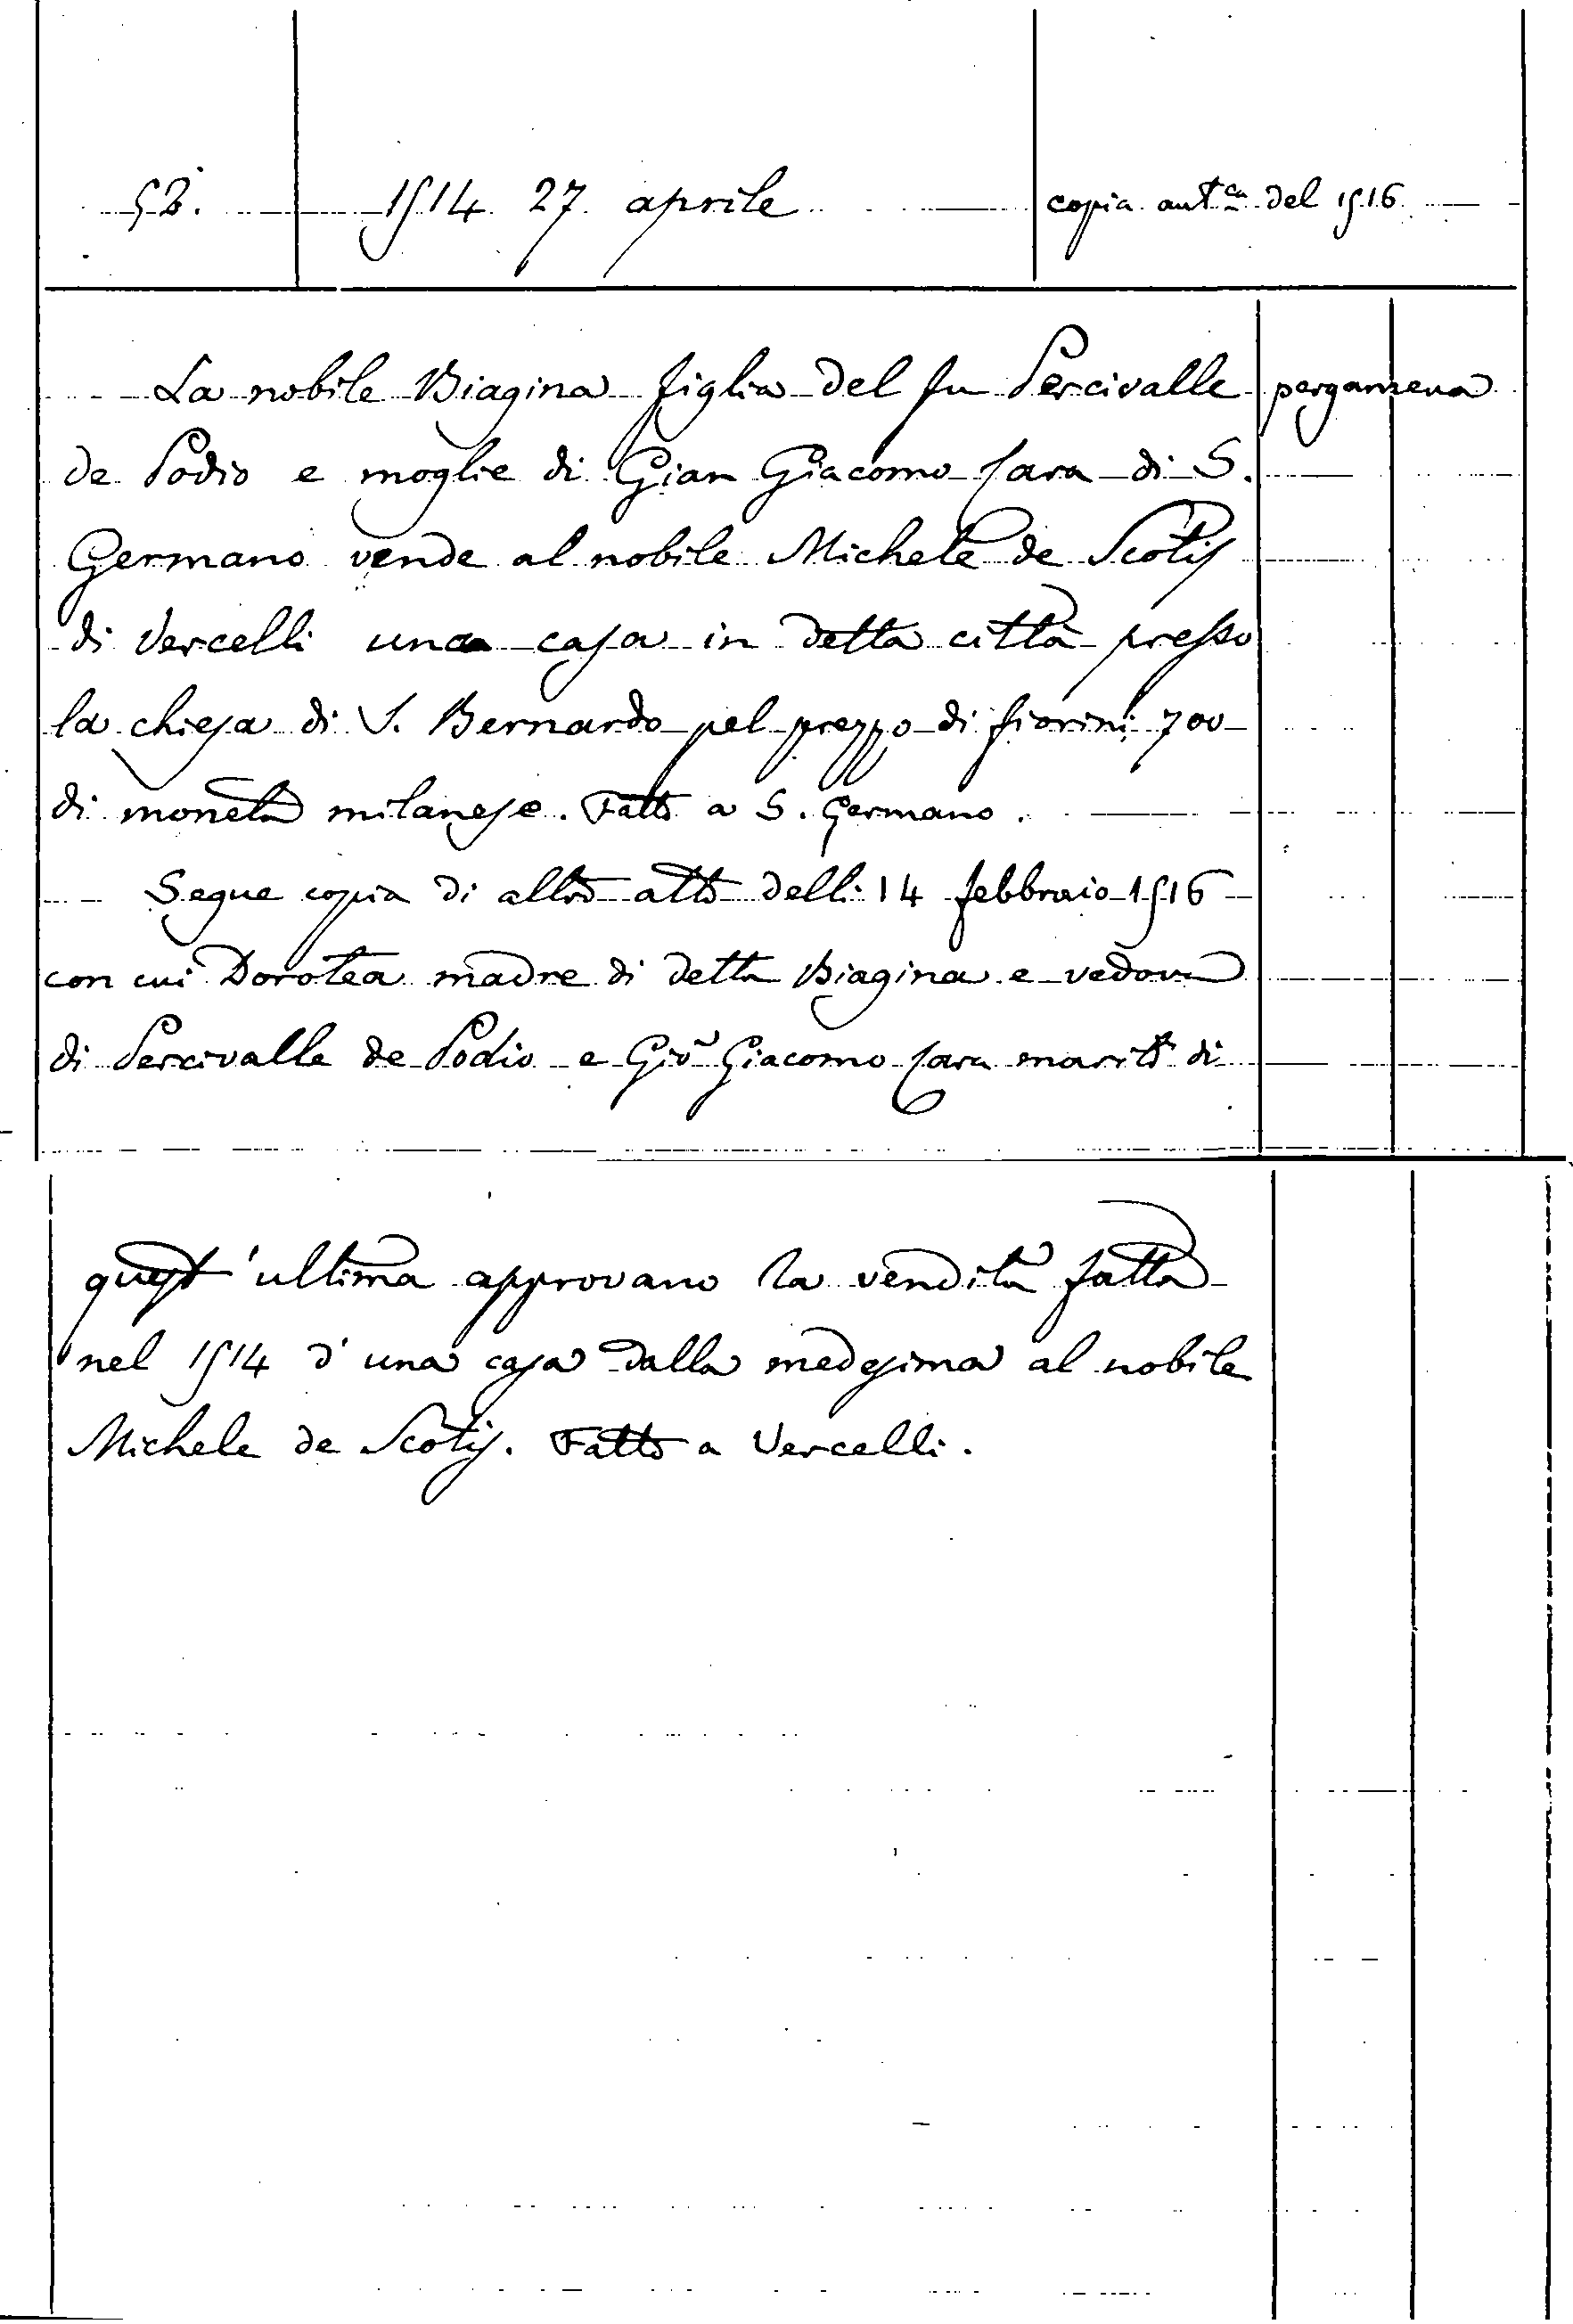 52. 1514 27 aprile copia aut.ca del 1516
La nobile Biagina figlia del fu Percivalle pergamena
de Podio e moglie di Gian Giacomo Cara di S.
Germano vende al nobile Michele de Scotis
di Vercelli una casa in detta città presso
la chiesa di S. Bernardo pel prezzo di fiorini 700
di moneta milanese. Fatto a S. Germano.
Segue copia di altro atto delli 14 febbraio 1516
con cui Dorotea madre di detta Biagina e vedova
di Percivalle de Podio e Gio Giacomo Cara marito di
quest'ultima approvano la vendita fatta
nel 1514 d'una casa dalla medesima al nobile
Michele de Scotis. Fatto a Vercelli.